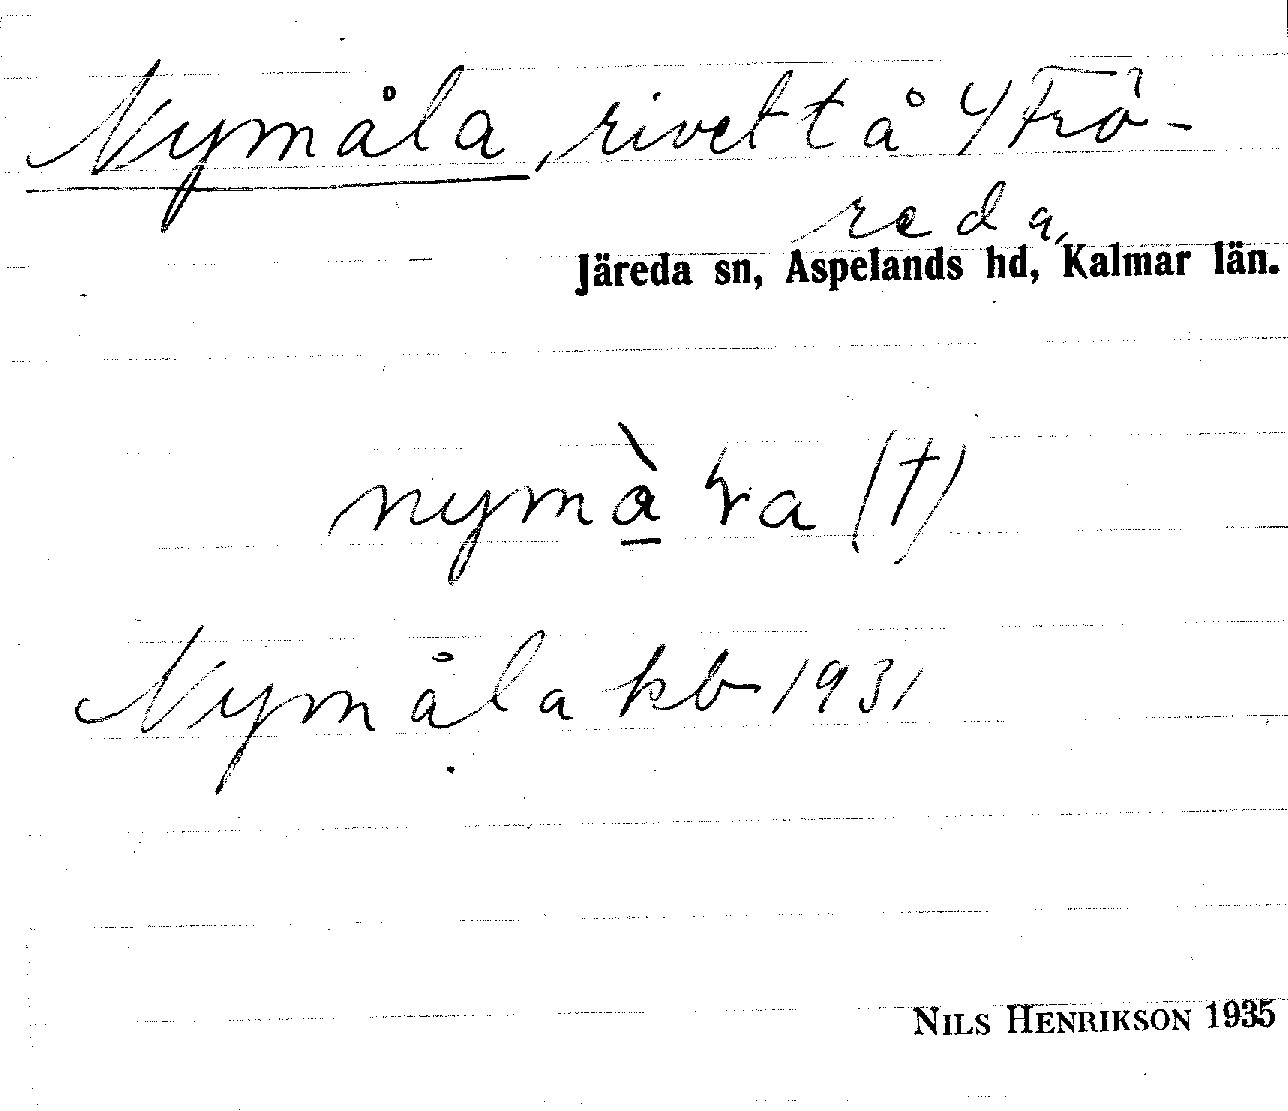 Nymåla, rivet t å 4 Frö-
reda,
Järeda sn, Aspelands hd, Kalmar län.
nymàɽa (†)
Nymåla kb 1931
NILS HENRIKSON 1935